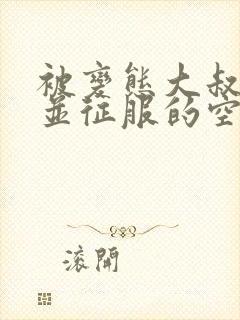 被變態大叔
並征服的空
滾開